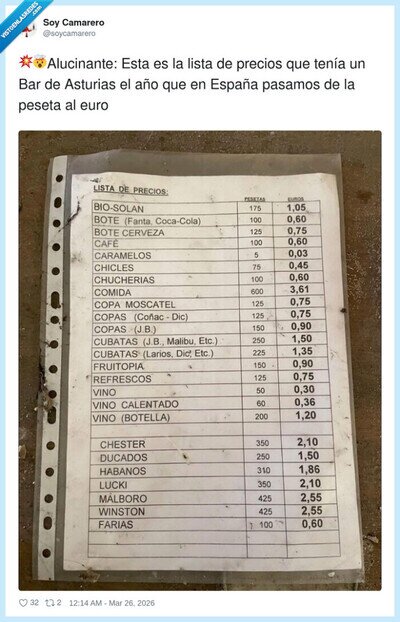 VISTOENLASREDES
.com
Soy Camarero
@soycamarero
💥🤯Alucinante: Esta es la lista de precios que tenía un
Bar de Asturias el año que en España pasamos de la
peseta al euro
LISTA DE PRECIOS:
PESETAS EUROS
BIO-SOLAN 175 1,05
BOTE (Fanta, Coca-Cola) 100 0,60
BOTE CERVEZA 125 0,75
CAFÉ 100 0,60
CARAMELOS 5 0,03
CHICLES 75 0,45
CHUCHERIAS 100 0,60
COMIDA 600 3,61
COPA MOSCATEL 125 0,75
COPAS (Coñac - Dic) 125 0,75
COPAS (J.B.) 150 0,90
CUBATAS (J.B., Malibu, Etc.) 250 1,50
CUBATAS (Larios, Dic, Etc.) 225 1,35
FRUITOPIA 150 0,90
REFRESCOS 125 0,75
VINO 50 0,30
VINO CALENTADO 60 0,36
VINO (BOTELLA) 200 1,20
CHESTER 350 2,10
DUCADOS 250 1,50
HABANOS 310 1,86
LUCKI 350 2,10
MALBORO 425 2,55
WINSTON 425 2,55
FARIAS 100 0,60
32 2 12:14 AM - Mar 26, 2026